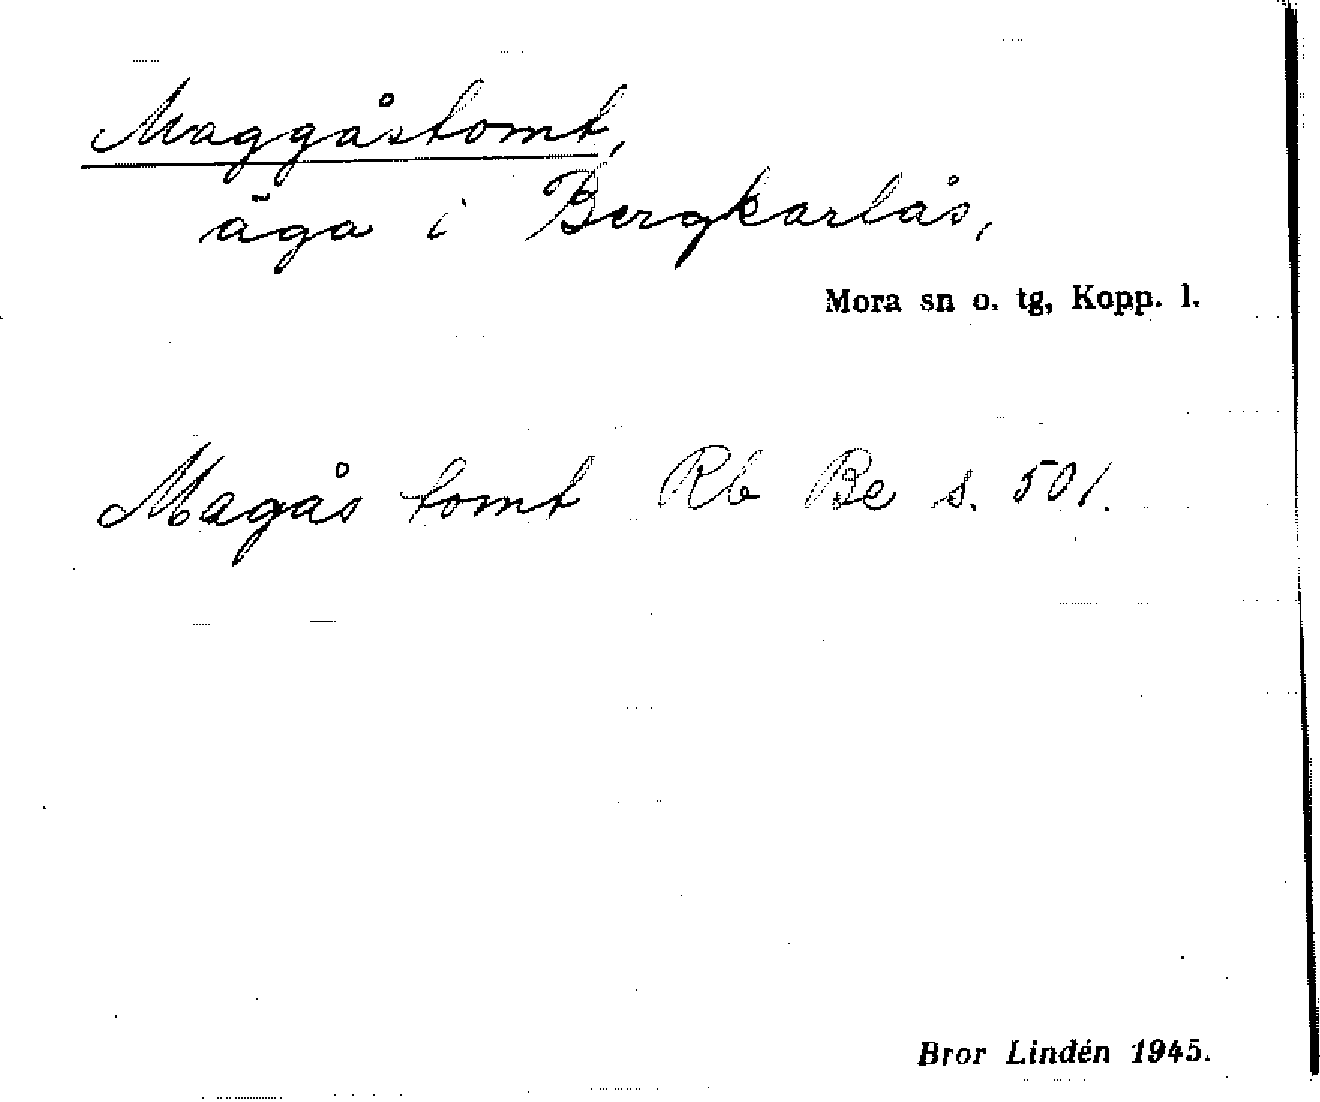 Maggåstomt,
äga i Bergkarlås,
Mora sn o. tg, Kopp. l.
Magås tomt Rb Be s. 501.
Bror Lindén 1945.